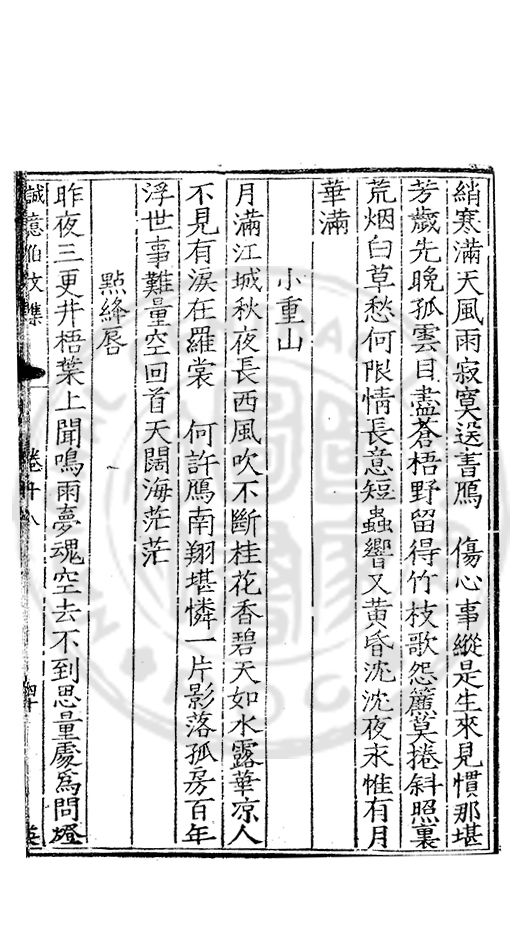 綃寒滿天風雨寂寞送書鴈　傷心事縱是生來見慣那堪
芳歲先晚孤雲目盡蒼梧野留得竹枝歌怨簾莫捲斜照裏
荒烟白草愁何限情長意短蟲響又黃昏沈沈夜永惟有月
華滿
小重山
月滿江城秋夜長西風吹不斷桂花香碧天如水露華凉人
不見有淚在羅裳　何許鴈南翔堪憐一片影落孤房百年
浮世事難量空回首天闊海茫茫
點絳唇
昨夜三更井梧葉上聞鳴雨夢魂空去不到思量處爲問燈
誠意伯文集　卷十八　四十